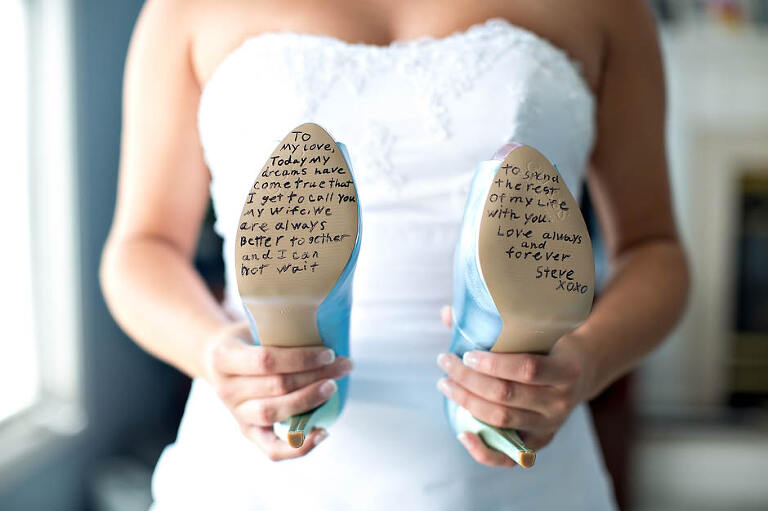 To
My Love,
Today My
dreams have
come true that
I get to call you
My Wife. We
are always
Better together
and I can
not wait
to spend
the rest
of my Life
with you.
Love always
and
forever
Steve
XOXO